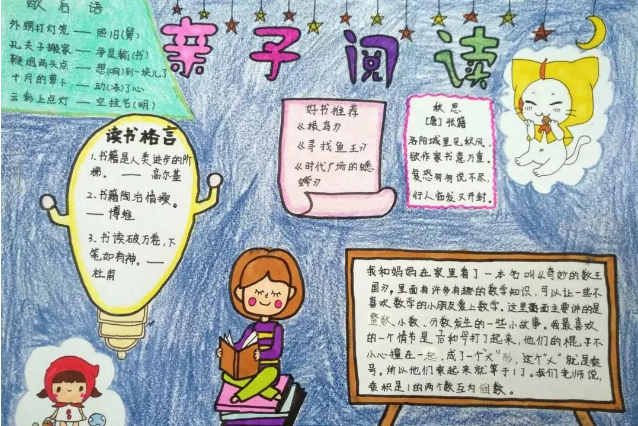 歇后语
外甥打灯笼——照旧(舅)
孔夫子搬家——净是输(书)
鞭炮两头点——想(响)到一块儿了
十月的萝卜——动(冻)了心
云彩上点灯——空挂名(明)
亲子阅读
读书格言
1.书籍是人类进步的阶
梯。——高尔基
2.书籍陶冶情操。
——博维
3.书读破万卷，下
笔如有神。——
杜甫
好书推荐
《根鸟》
《寻找鱼王》
《时代广场的蟋
蟀》
秋思
[唐]张籍
洛阳城里见秋风，
欲作家书意万重。
复恐匆匆说不尽，
行人临发又开封。
我和妈妈在家里看了一本书叫《奇妙的数王
国》。里面有许多有趣的数学知识，可以让一些不
喜欢数学的小朋友爱上数学。这里面主要讲的是
整数、小数、分数发生的一些小故事。我最喜欢
的一个情节是 和 打了起来，他们的棍子不
小心撞在一起，成了一个"×"形，这个"×"就是乘
号。所以他们乘起来就等于1了。我们老师说，
乘积是1的两个数互为倒数。